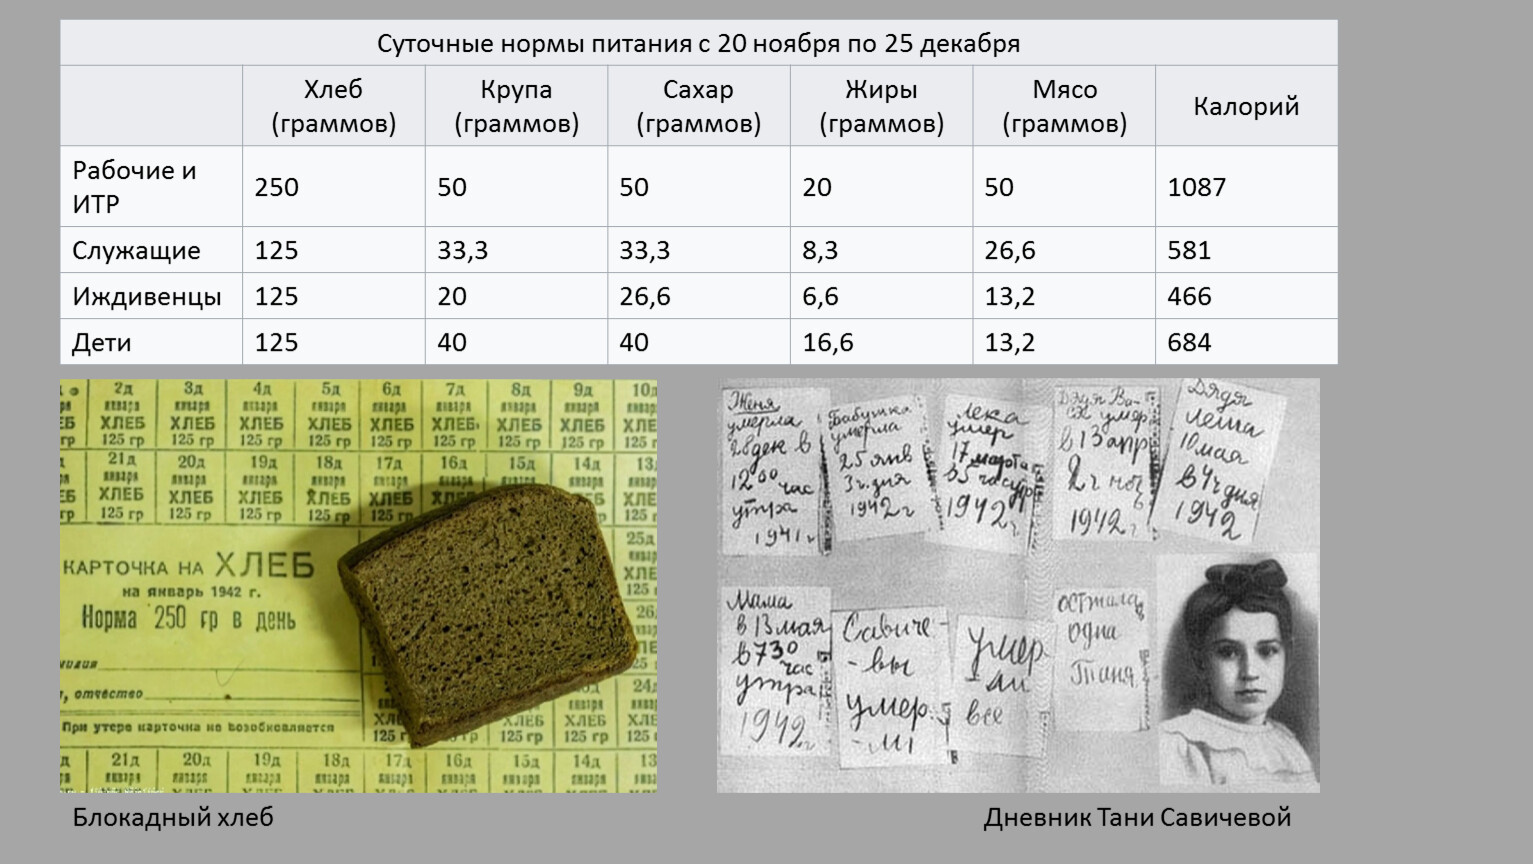 Суточные нормы питания с 20 ноября по 25 декабря
Хлеб (граммов) Крупа (граммов) Сахар (граммов) Жиры (граммов) Мясо (граммов) Калорий
Рабочие и ИТР 250 50 50 20 50 1087
Служащие 125 33,3 33,3 8,3 26,6 581
Иждивенцы 125 20 26,6 6,6 13,2 466
Дети 125 40 40 16,6 13,2 684
2д 3д 4д 5д 6д 7д 8д 9д 10д
января января января января января января января января
ХЛЕБ ХЛЕБ ХЛЕБ ХЛЕБ ХЛЕБ ХЛЕБ ХЛЕБ ХЛЕБ
125 гр 125 гр 125 гр 125 гр 125 гр 125 гр 125 гр 125 гр
21д 20д 19д 18д 17д 16д 15д 14д 13
января января января января января января января января
ХЛЕБ ХЛЕБ ХЛЕБ ХЛЕБ ХЛЕБ ХЛЕБ ХЛЕБ ХЛЕБ
125 гр 125 гр 125 гр 125 гр 125 гр
25д
КАРТОЧКА НА ХЛЕБ
на январь 1942 г.
Норма 250 гр в день
отчество
24д
При утере карточка не возобновляется
ХЛЕБ ХЛЕБ
125 гр 125 гр 125 гр
21д 20д 19д 18д 17д 16д 15д 14д 13
января января января января января января января января
Женя
умерла
28 дек в
12 00
час
утра
1941 г
Бабушка
умерла
25 янв
3 ч. дня
1942 г
Лека
умер
17 марта
в 5 час утр
1942 г
Дядя Ва-
ся умер
в 13 апр
2 ч ноч
1942 г
Дядя
Леша
10 мая
в 4 ч дня
1942
Мама
в 13 мая
в 7 30
час
утра
1942 г
Савиче-
-вы
умер.
-ли
Умер
ли
все
Осталась
одна
Таня
Блокадный хлеб
Дневник Тани Савичевой